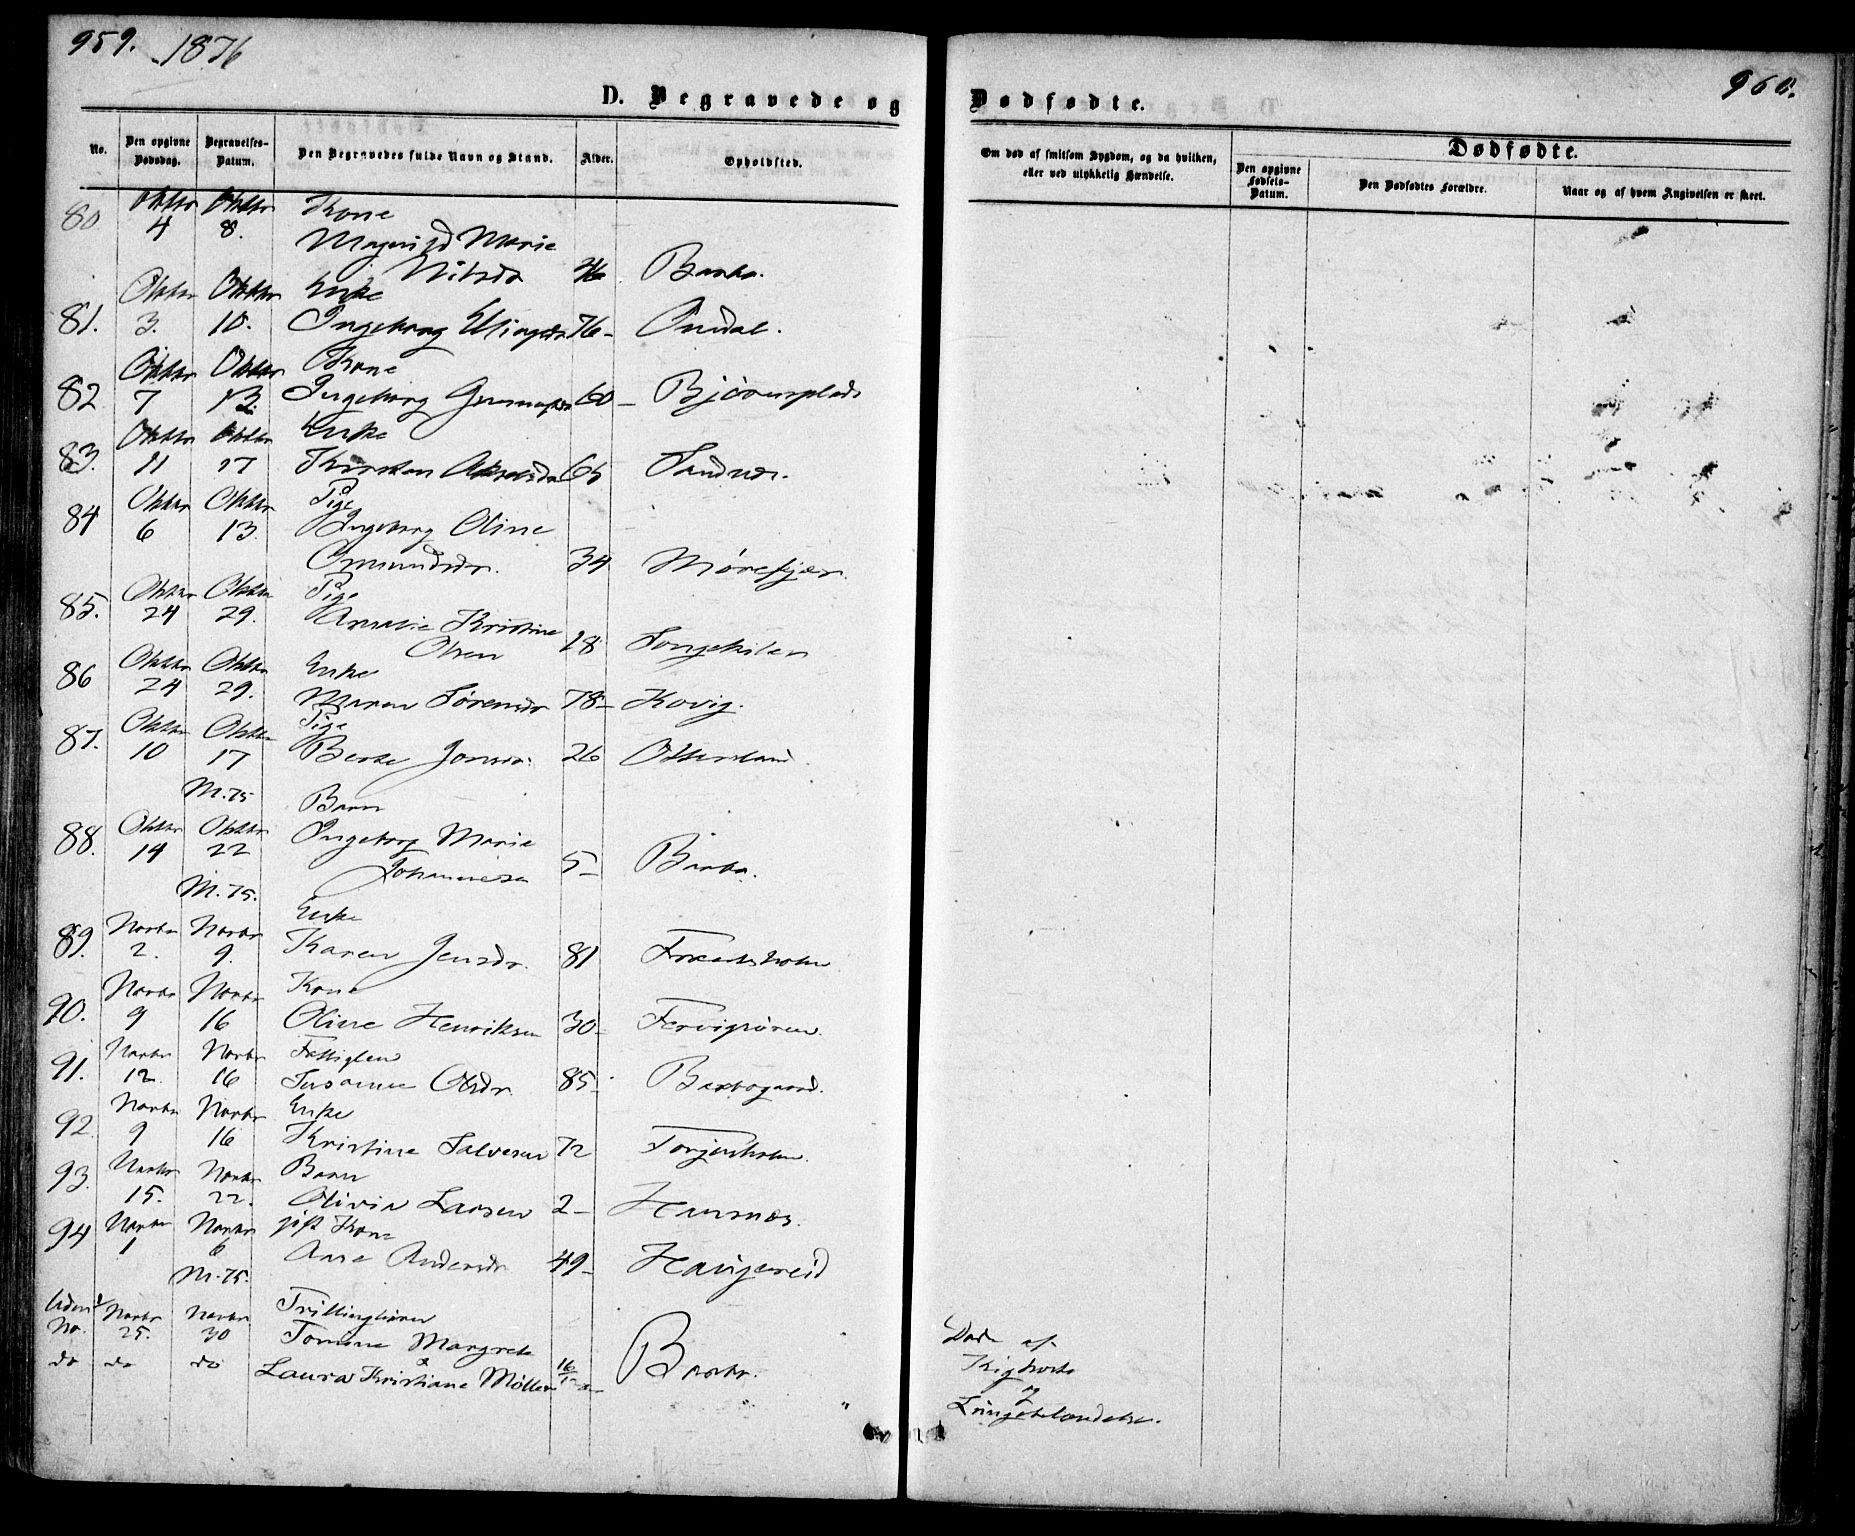 959. 1876
960.
D. Begravede og Dødfødte.
No.
Den opgivne Dødsdag.
Begravelses-Datum.
Den Begravedes fulde Navn og Stand.
Alder.
Opholdsted.
Om død af smitsom Sygdom, og da hvilken, eller ved ulykkelig Hændelse.
Dødfødte.
Den opgivne Fødsels-Datum.
Den Dødfødtes Forældre.
Naar og af hvem Angivelsen er skeet.
80. Oktbr 4 Oktbr 8. Kone
Marie
Nilsdr Barbo.
81. Oktbr 3. Oktbr 10. Enke
Ingeborg 76-
82 Oktbr 7 Oktbr 13. Kone
Ingeborg 60-
83. Oktbr 11 Oktbr 17 Enke
Kirsten 65 Sandnæs.
84 Oktbr 6 Oktbr 13. Pige
Ingeborg Oline
Omundsdr. 34 Mørefjær.
85. Oktbr 24 Oktbr 29. Pige
Amalie Kristine
Olsen 18 Songekilen
86 Oktbr 24 Oktbr 29. Enke
Maren Sørensdr 78- Kovig.
87. Oktbr 10 Oktbr 17 Pige
Berte Jonsdr. 26
M. 75
88. Oktbr 14 Oktbr 22 Barn
Ingeborg Marie
Johannesen 5- Barbo.
M. 75.
89. Novbr 2. Novbr 9. Enke
Karen Jensdr. 81
90. Novbr 9 Novbr 16 Kone
Oline Henriksen 30-
91. Novbr 12. Novbr 16 Fattiglem
Susanne Olsdr 85- Barbogaard.
92. Novbr 9 Novbr 16 Enke
Kristine Salvesen 72 Torjenholm.
93. Novbr 15. Novbr 22. Barn
Olivia Larsen 2-
94 Novbr 1 Novbr 6 gift Kone
Ane Andersdr 49- Haugereid
M. 75.
Uden No. Novbr 25. Novbr 30 Trillingbørn
Tomine Margrete
do do do Laura Kristiane Møller Barbo.
Døde af
Kighoste
og
Lungebetændelse.